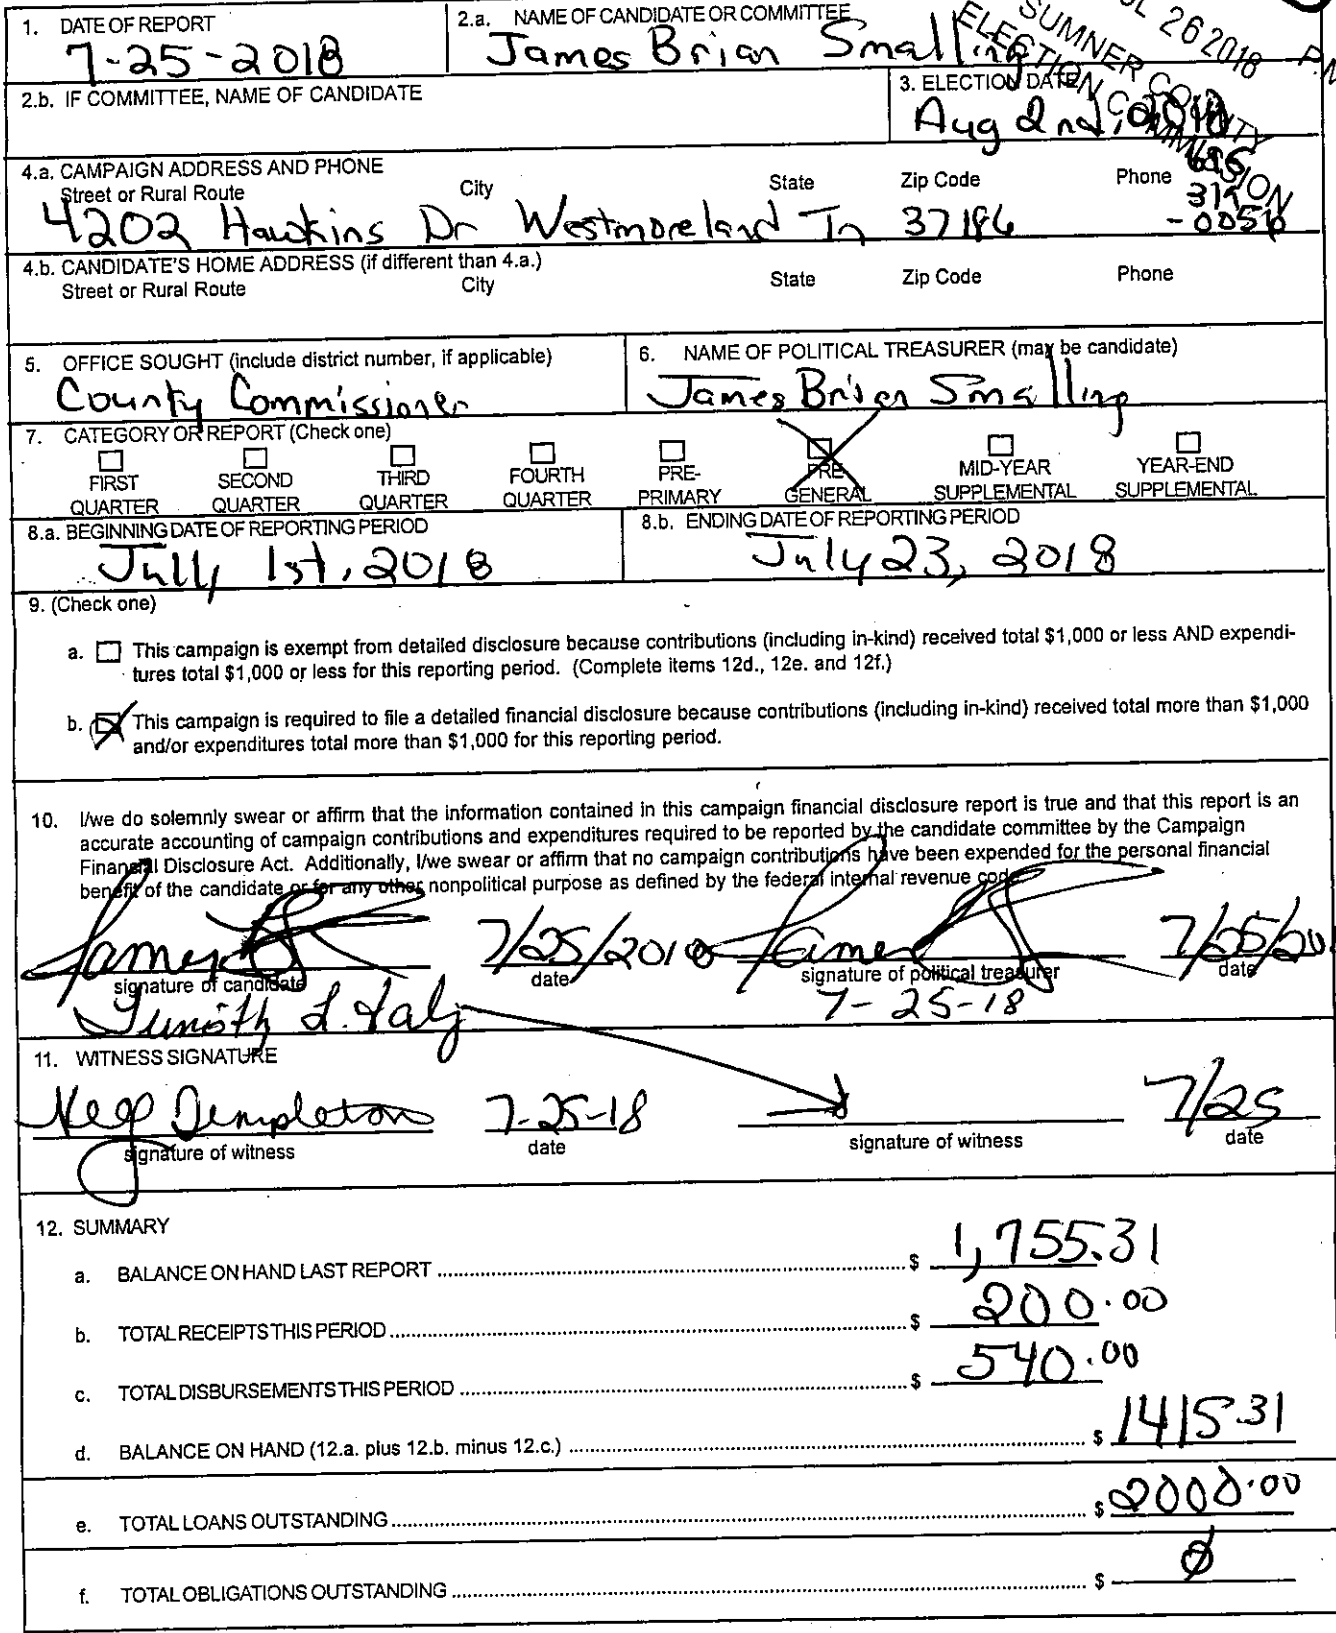 1. DATE OF REPORT
7-25-2018
2.a. NAME OF CANDIDATE OR COMMITTEE
James Brian Smalling
26 2018
SUMNER COUNTY
ELECTION COMMISSION
2.b. IF COMMITTEE, NAME OF CANDIDATE
3. ELECTION DATE
Aug 2nd, 2018
4.a. CAMPAIGN ADDRESS AND PHONE
Street or Rural Route City State Zip Code Phone
4202 Hawkins Dr Westmoreland Tn 37186
4.b. CANDIDATE'S HOME ADDRESS (if different than 4.a.)
Street or Rural Route City State Zip Code Phone
5. OFFICE SOUGHT (include district number, if applicable)
County Commissioner
6. NAME OF POLITICAL TREASURER (may be candidate)
James Brian Smalling
7. CATEGORY OR REPORT (Check one)
FIRST QUARTER
SECOND QUARTER
THIRD QUARTER
FOURTH QUARTER
PRE-PRIMARY
PRE-GENERAL
MID-YEAR SUPPLEMENTAL
YEAR-END SUPPLEMENTAL
8.a. BEGINNING DATE OF REPORTING PERIOD
July 1st, 2018
8.b. ENDING DATE OF REPORTING PERIOD
July 23, 2018
9. (Check one)
a. This campaign is exempt from detailed disclosure because contributions (including in-kind) received total $1,000 or less AND expendi-
tures total $1,000 or less for this reporting period. (Complete items 12d., 12e. and 12f.)
b. This campaign is required to file a detailed financial disclosure because contributions (including in-kind) received total more than $1,000
and/or expenditures total more than $1,000 for this reporting period.
10. I/we do solemnly swear or affirm that the information contained in this campaign financial disclosure report is true and that this report is an
accurate accounting of campaign contributions and expenditures required to be reported by the candidate committee by the Campaign
Financial Disclosure Act. Additionally, I/we swear or affirm that no campaign contributions have been expended for the personal financial
benefit of the candidate or for any other nonpolitical purpose as defined by the federal internal revenue code
James 7/25/2018 James 7/25/201
signature of candidate date signature of political treasurer date
7-25-18
11. WITNESS SIGNATURE
Templeton 7-25-18 7/25
signature of witness date signature of witness date
12. SUMMARY
a. BALANCE ON HAND LAST REPORT $ 1,755.31
b. TOTAL RECEIPTS THIS PERIOD $ 200.00
c. TOTAL DISBURSEMENTS THIS PERIOD $ 540.00
d. BALANCE ON HAND (12.a. plus 12.b. minus 12.c.) $ 1415.31
e. TOTAL LOANS OUTSTANDING $ 2000.00
f. TOTAL OBLIGATIONS OUTSTANDING $ Ø